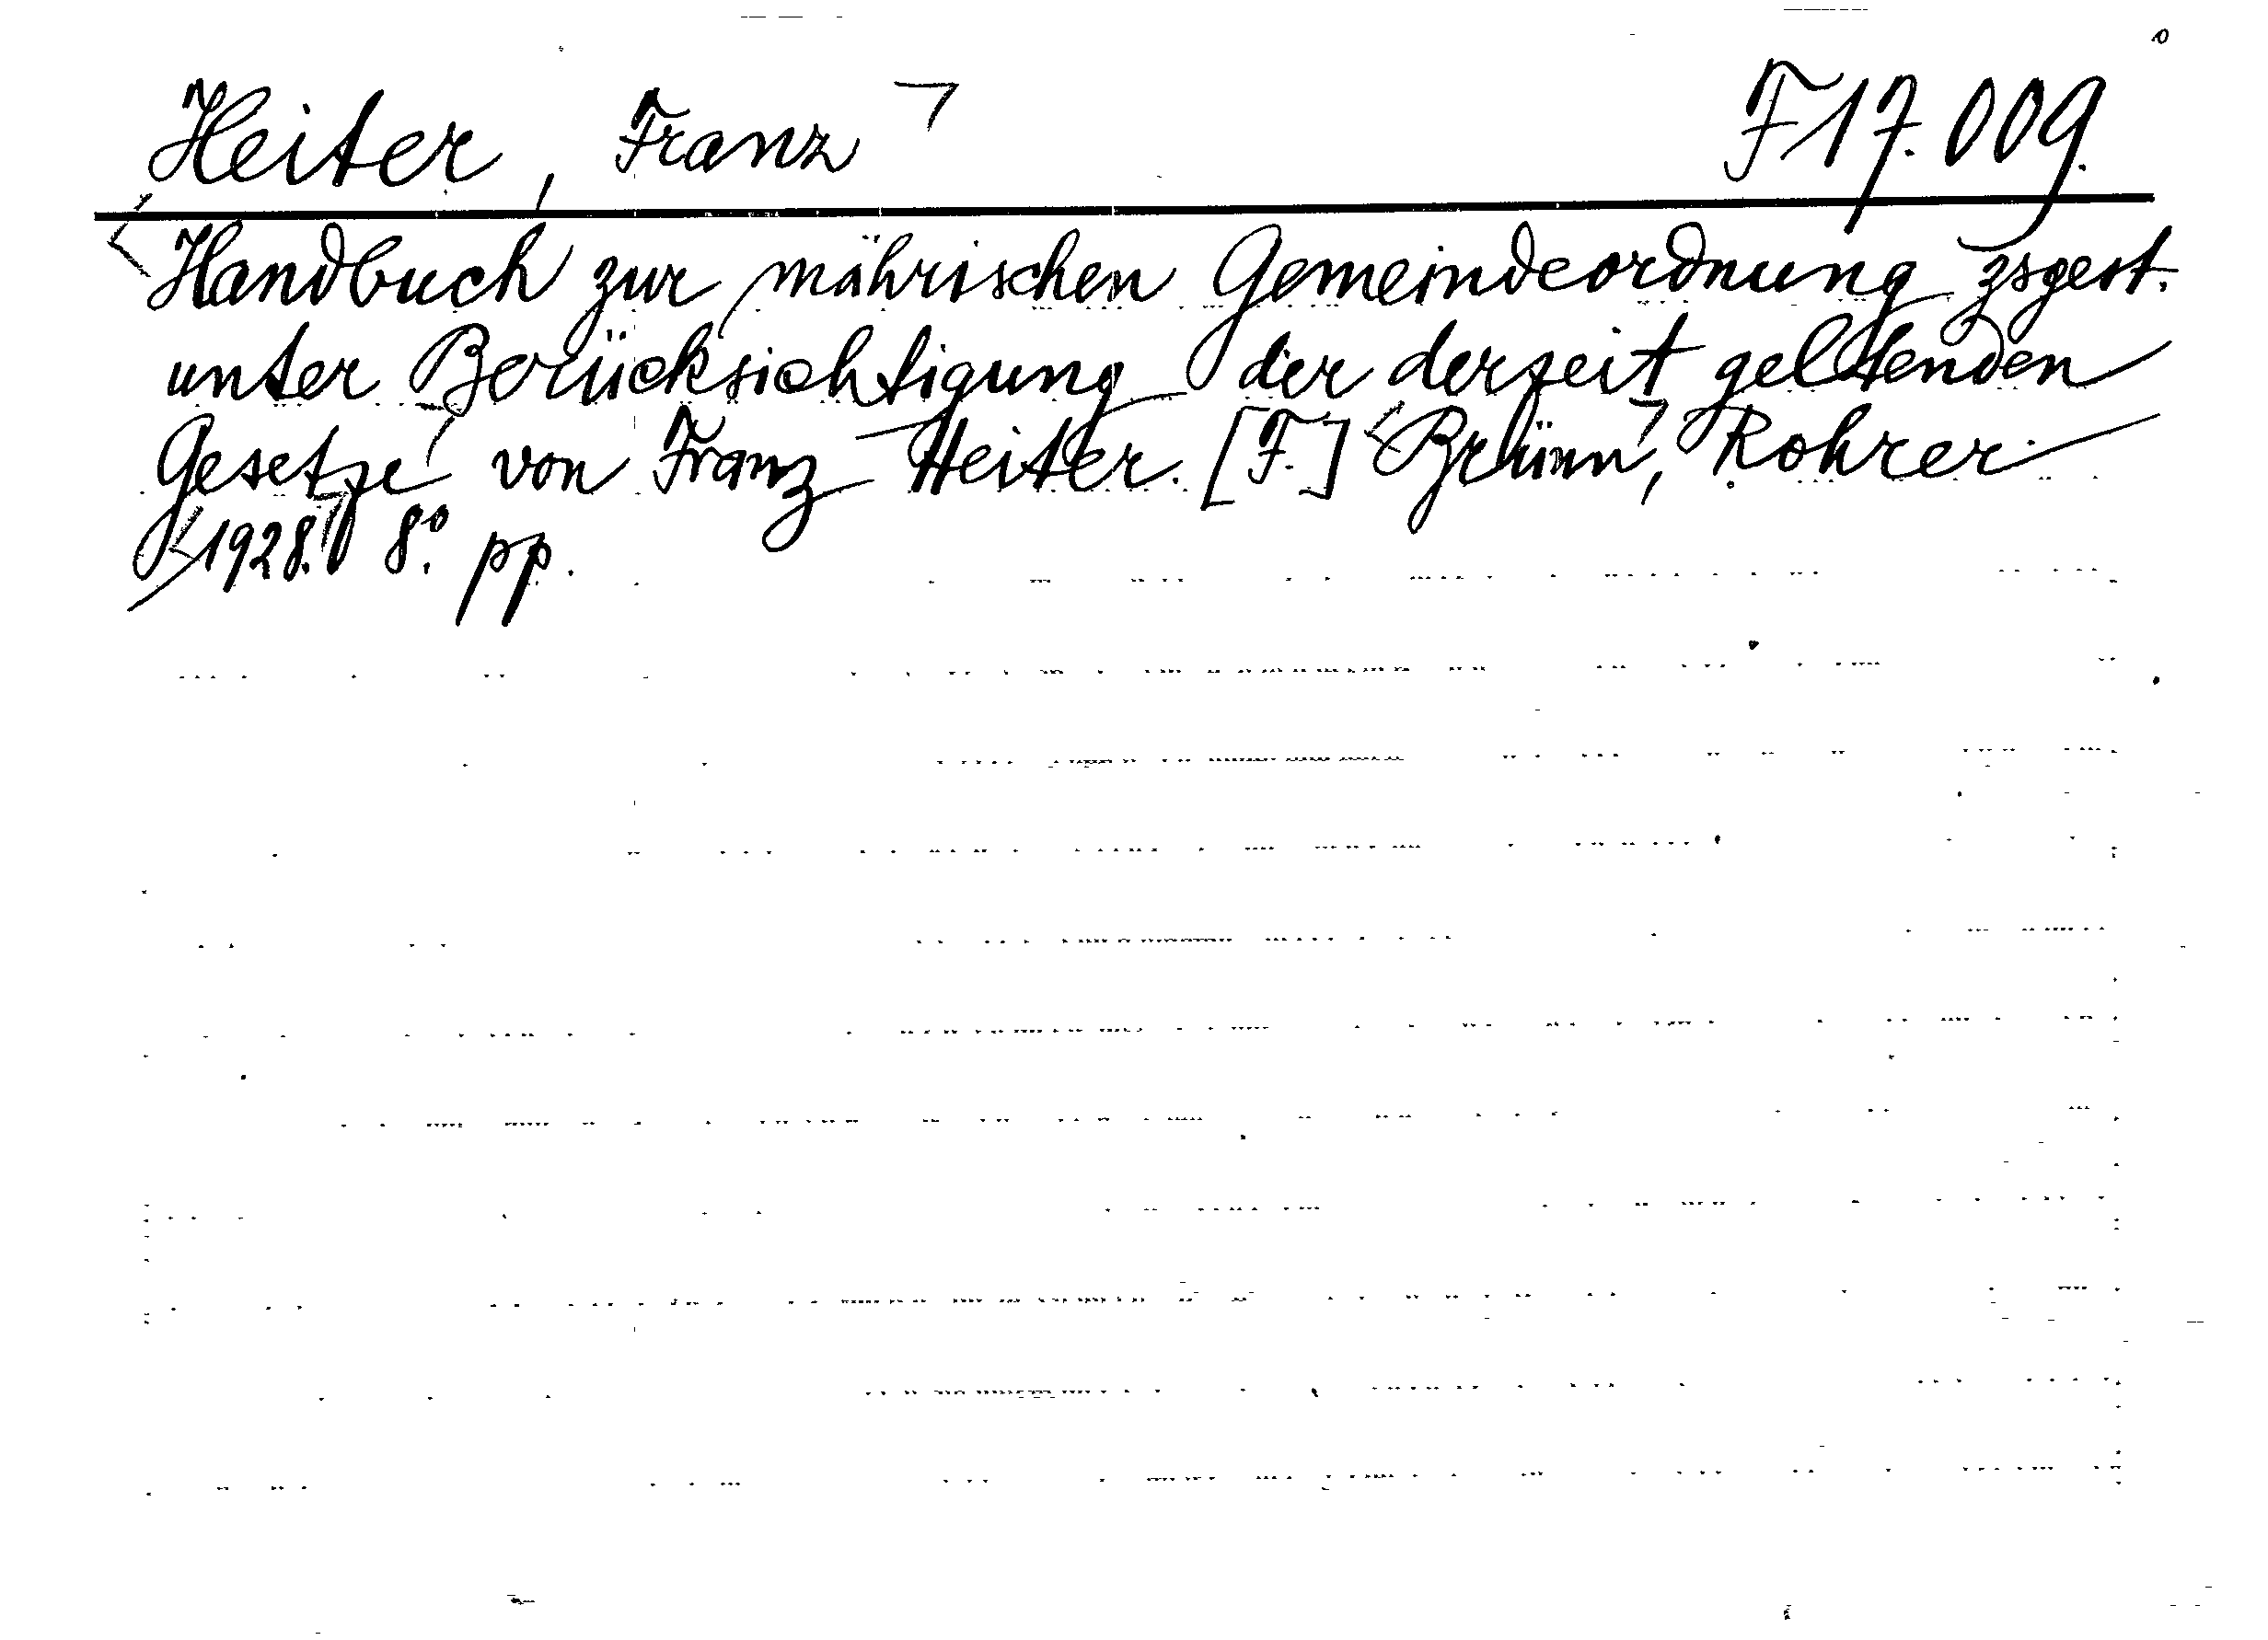 Heiter, Franz F 17.009.
Handbuch zur mährischen Gemeindeordnung zsgest.
unter Berücksichtigung der derzeit geltenden
Gesetze von Franz Heiter. [F.] Brünn, Rohrer
1928. 8º. pp.